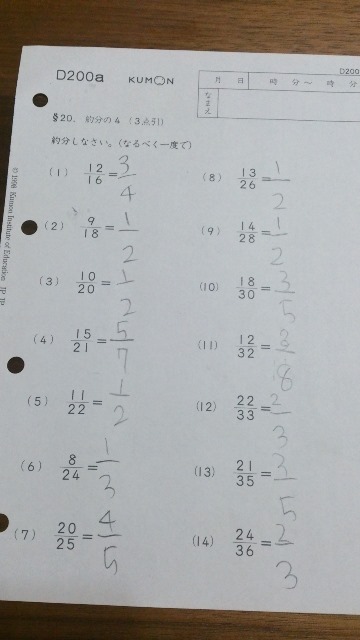 D200a KUMON
D200
月 日 時 分〜 時 分
なまえ
§20. 約分の4 (3点引)
約分しなさい。(なるべく一度で)
(1) 12/16 = 3/4
(2) 9/18 = 1/2
(3) 10/20 = 1/2
(4) 15/21 = 5/7
(5) 11/22 = 1/2
(6) 8/24 = 1/3
(7) 20/25 = 4/5
(8) 13/26 = 1/2
(9) 14/28 = 1/2
(10) 18/30 = 3/5
(11) 12/32 = 3/8
(12) 22/33 = 2/3
(13) 21/35 = 3/5
(14) 24/36 = 2/3
Kumon Institute of Education